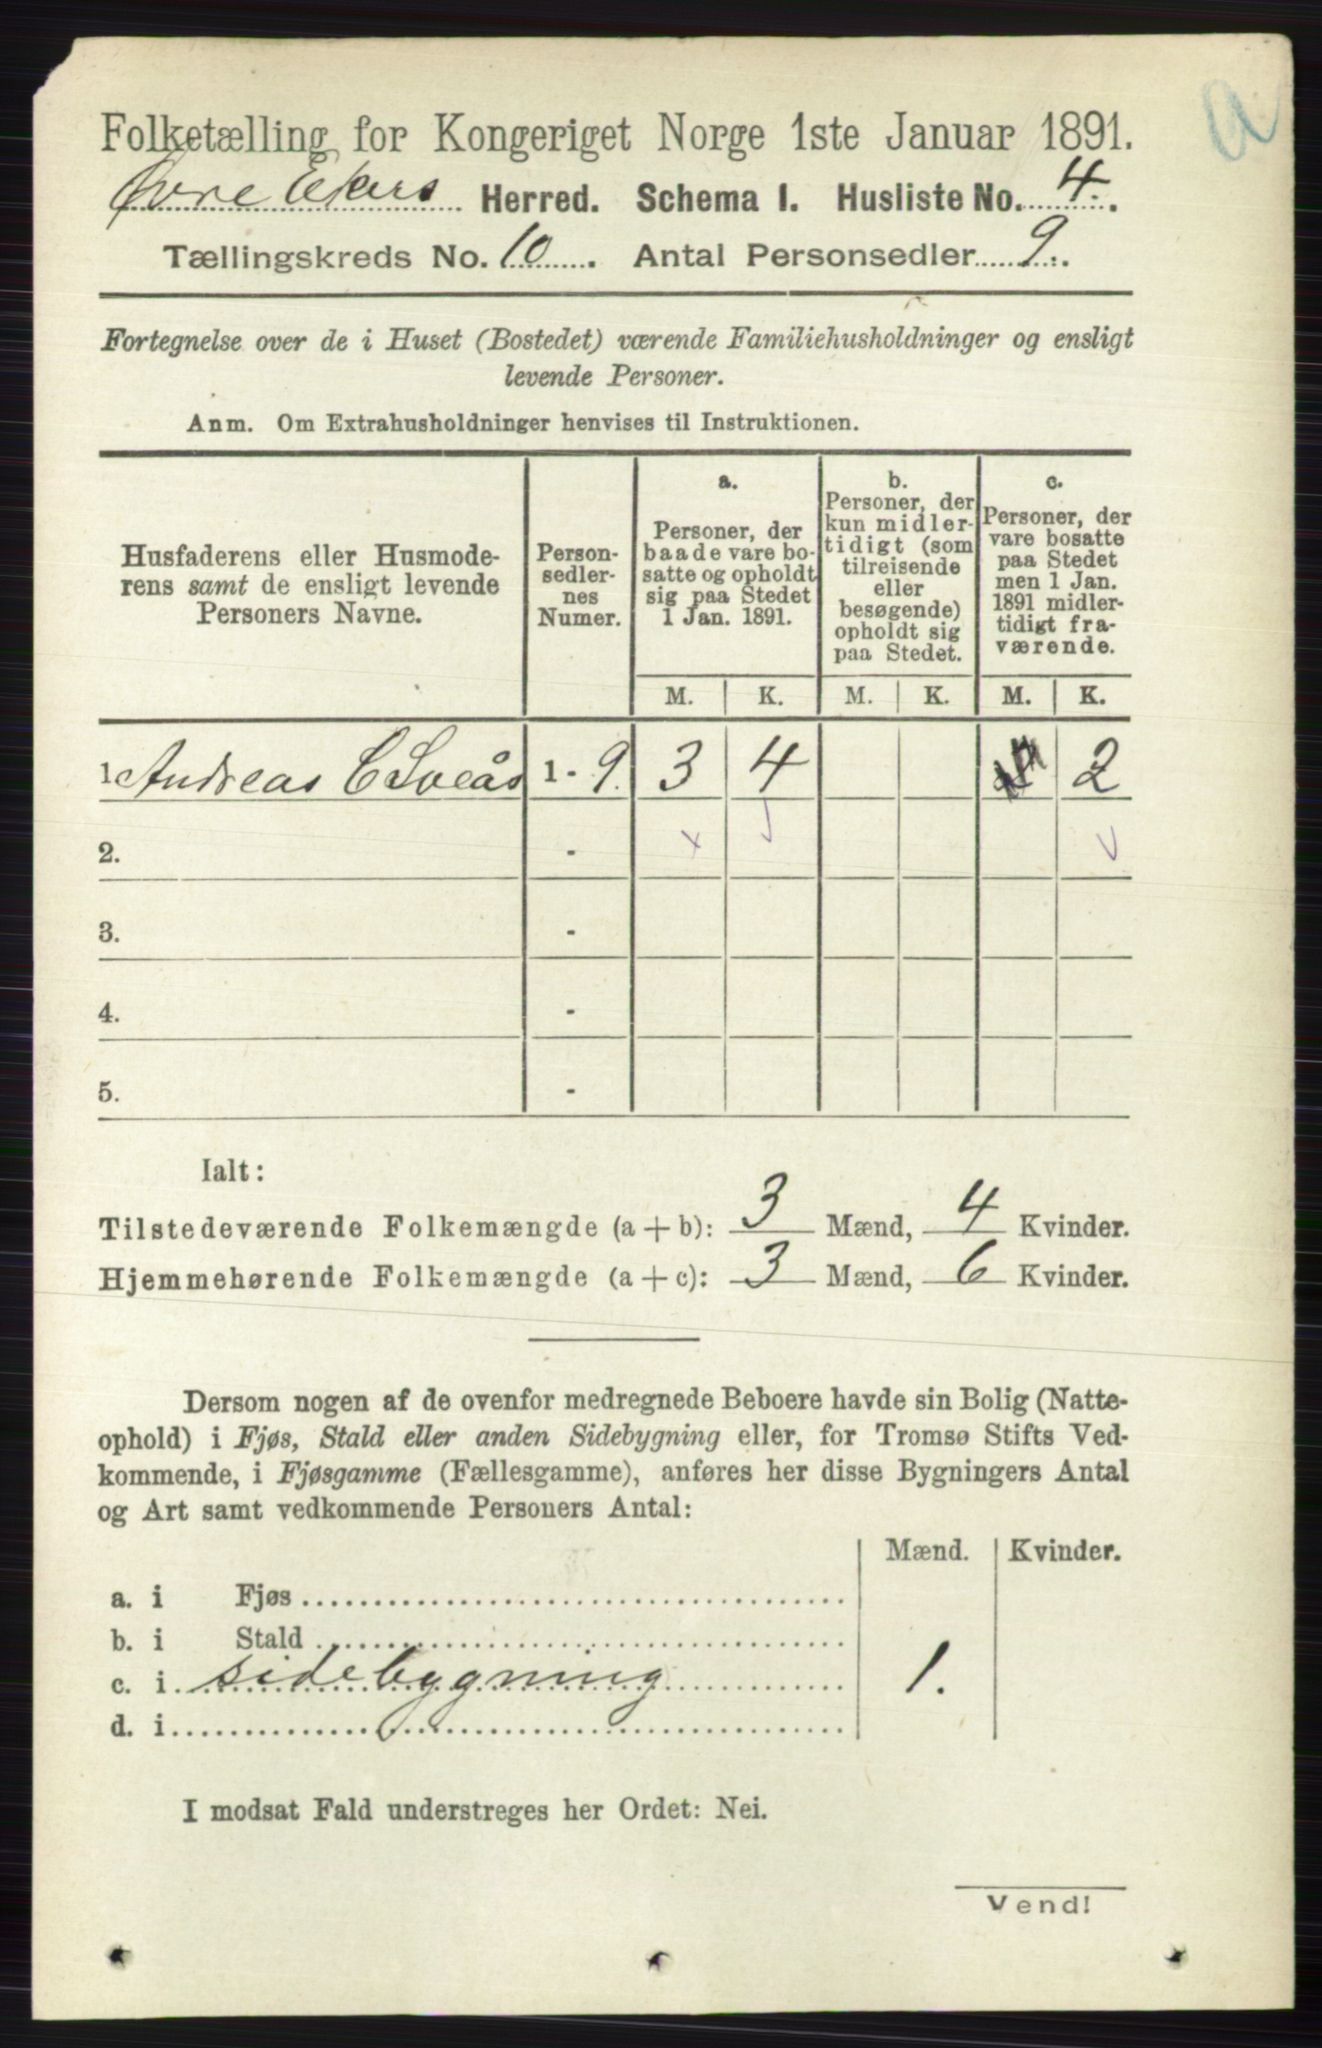 a
Folketælling for Kongeriget Norge 1ste Januar 1891.
Øvre Ekers Herred. Schema I. Husliste No. 4.
Tællingskreds No. 10. Antal Personsedler 9.
Fortegnelse over de i Huset (Bostedet) værende Familiehusholdninger og ensligt
levende Personer.
Anm. Om Extrahusholdninger henvises til Instruktionen.
Husfaderens eller Husmode-
rens samt de ensligt levende
Personers Navne.
Person-
sedler-
nes
Numer.
a.
Personer, der
baade vare bo-
satte og opholdt
sig paa Stedet
1 Jan. 1891.
b.
Personer, der
kun midler-
tidigt (som
tilreisende
eller
besøgende)
opholdt sig
paa Stedet.
c.
Personer, der
vare bosatte
paa Stedet
men 1 Jan.
1891 midler-
tidigt fra-
værende.
M. K. M. K. M. K.
1. Andreas C 1 - 9. 3 4 2
2. -
3. -
4. -
5. -
Ialt:
Tilstedeværende Folkemængde (a + b): 3 Mænd, 4 Kvinder.
Hjemmehørende Folkemængde (a + c): 3 Mænd, 6 Kvinder.
Dersom nogen af de ovenfor medregnede Beboere havde sin Bolig (Natte-
ophold) i Fjøs, Stald eller anden Sidebygning eller, for Tromsø Stifts Ved-
kommende, i Fjøsgamme (Fællesgamme), anføres her disse Bygningers Antal
og Art samt vedkommende Personers Antal:
Mænd. Kvinder.
a. i Fjøs
b. i Stald
c. i sidebygning 1.
d. i
I modsat Fald understreges her Ordet: Nei.
Vend!